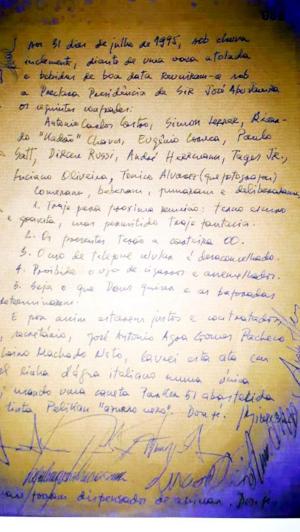 Aos 31 dias de julho de 1995, sob chuva
inclemente, diante de uma vaca atolada
e bebidas de boa data reuniram-se sob
a Presidência de Sir José
os seguintes confrades:
Antonio Carlos Castro, Simon
"Kadão" Chaves, Eugênio Corrêa, Paulo
Gatt, Dirceu Russi, André Hermann, Tages Jr.,
Luciano Oliveira, Tonico Alvares (que fotografou)
Comeram, beberam, fumaram e deliberaram:
1. Traje para próxima reunião: terno escuro
e gravata, mas permitido traje fantasia.
2. Os presentes terão a carteira 00.
3. O uso de telefone celular é desaconselhado.
4. Proibido o uso de isqueiros
5. Seja o que Deus quiser e as baforadas
determinarem.
E por assim estarem justos e contratados,
secretário, José Antonio Pacheco
Machado Neto, lavrei esta ata em
linha d'água italiano numa única
usando uma caneta Parker 51 abastecida
tinta Pelikan Dou fé.
foram dispensados de assinar. Dou fé.